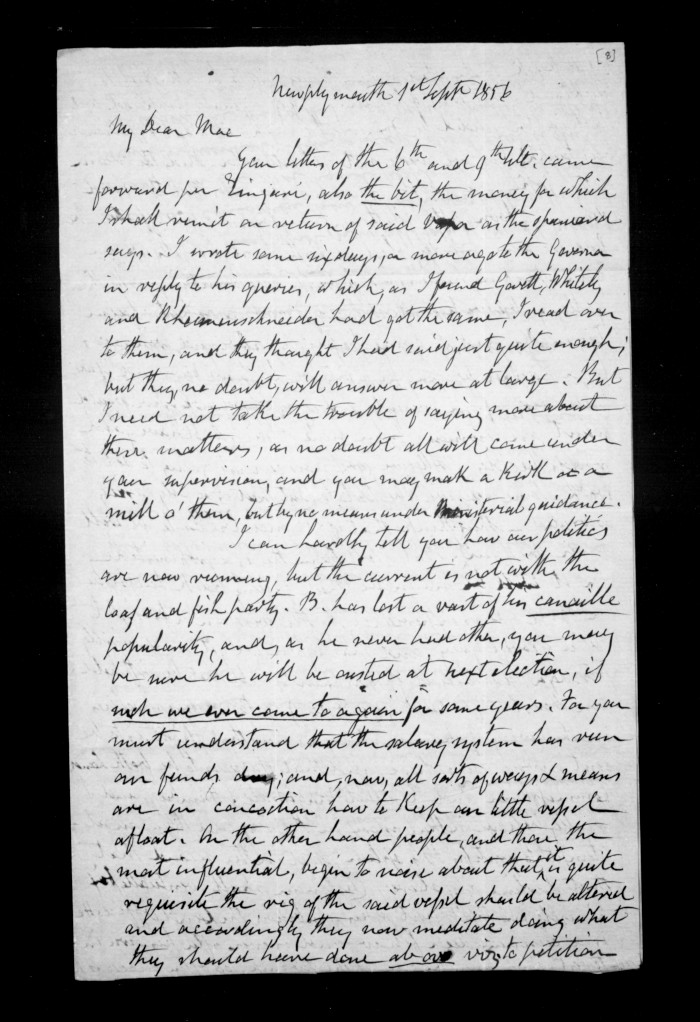 [8]
Newplymouth 1st Septr 1856
My Dear Mac
Your letters of the 6th and 9th Ult. came
forward per Zingari, also the bit, the money for which
I shall remit on return of said as the spaniard
says. I wrote some six days, or more ago to the Governor
in reply to his queries, which, as I found Govett, Whiteley
and Rheimenschneider had got the same, I read over
to them, and they thought I had said just quite enough;
but they, no doubt, will answer more at large. But
I need not take the trouble of saying more about
these matters, as no doubt all will come under
your supervision, and you may mak a kirk or a
mill o' them, but by no means under Ministerial guidance.
I can hardly tell you how our politics
are now running, but the current is not with the
loaf and fish party. B. has lost a vast of his canaille
popularity, and, as he never had other, you may
be sure he will be ousted at next election, if
such we ever come to again for some years. For you
must understand that the salary system has run
our funds dry; and, now, all sorts of ways & means
are in concoction how to keep our little vessel
afloat. On the other hand people, and those the
most influential, begin to noise about that it is quite
requisite the rig of the said vessel should be altered
and accordingly they now meditate doing what
they should have done ab ovo viz to petition